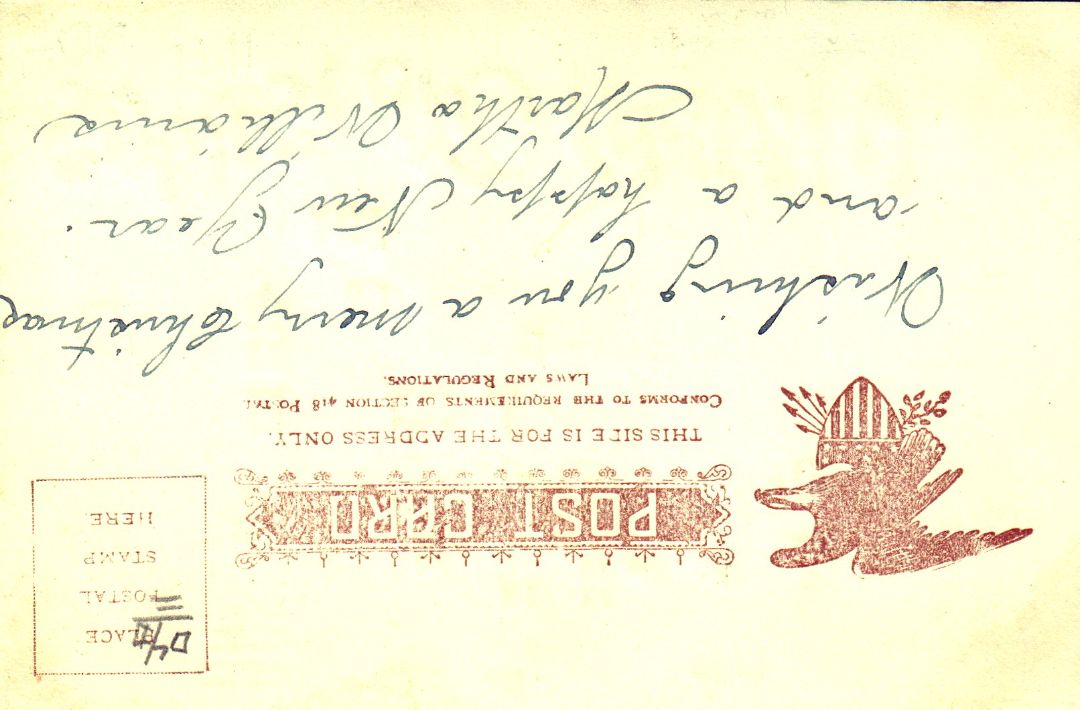 POST CARD
THIS SIDE IS FOR THE ADDRESS ONLY.
CONFORMS TO THE REQUIREMENTS OF SECTION 418 POSTAL
LAWS AND REGULATIONS.
PLACE
POSTAL
STAMP
HERE.
Wishing you a merry Christmas
and a happy New Year.
Martha Williams